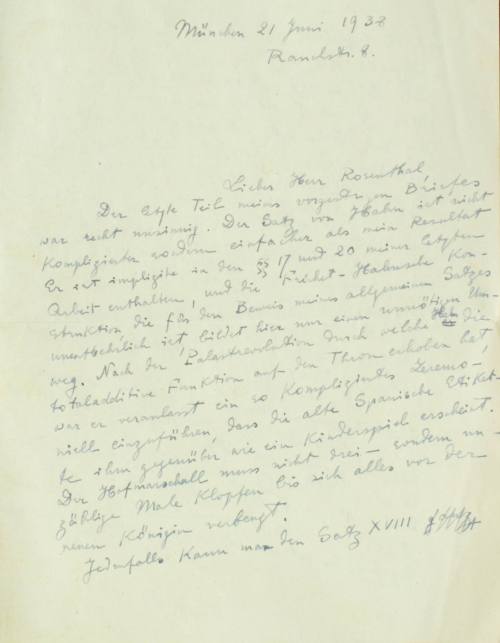 München 21 Juni 1938
Rauchstr. 8.
Lieber Herr Rosenthal,
Der letzte Teil meines vorgestrigen Briefes
war recht unsinnig. Der Satz von Hahn ist nicht
komplizierter sondern einfacher als mein Resultat
Er ist implizite in den §§ 17 und 20 meiner letzten
Arbeit enthalten, und die Fréchet-Hahnsche Kon-
struktion die für den Beweis meines allgemeinen Satzes
unentbehrlich ist bildet hier nur einen unnötigen Um-
weg. Nach der Palastrevolution durch welche die
totaladditive Funktion auf den Thron erhoben hat
war er veranlasst ein so kompliziertes Zeremo-
niell einzuführen, dass die alte Spanische Etiket-
te ihm gegenüber wie ein Kinderspiel erscheint.
Der Hofmarschall muss nicht drei- sondern un-
zählige Male klopfen bis sich alles vor der
neuen Königin verbeugt.
Jedenfalls kann man den Satz XVIII